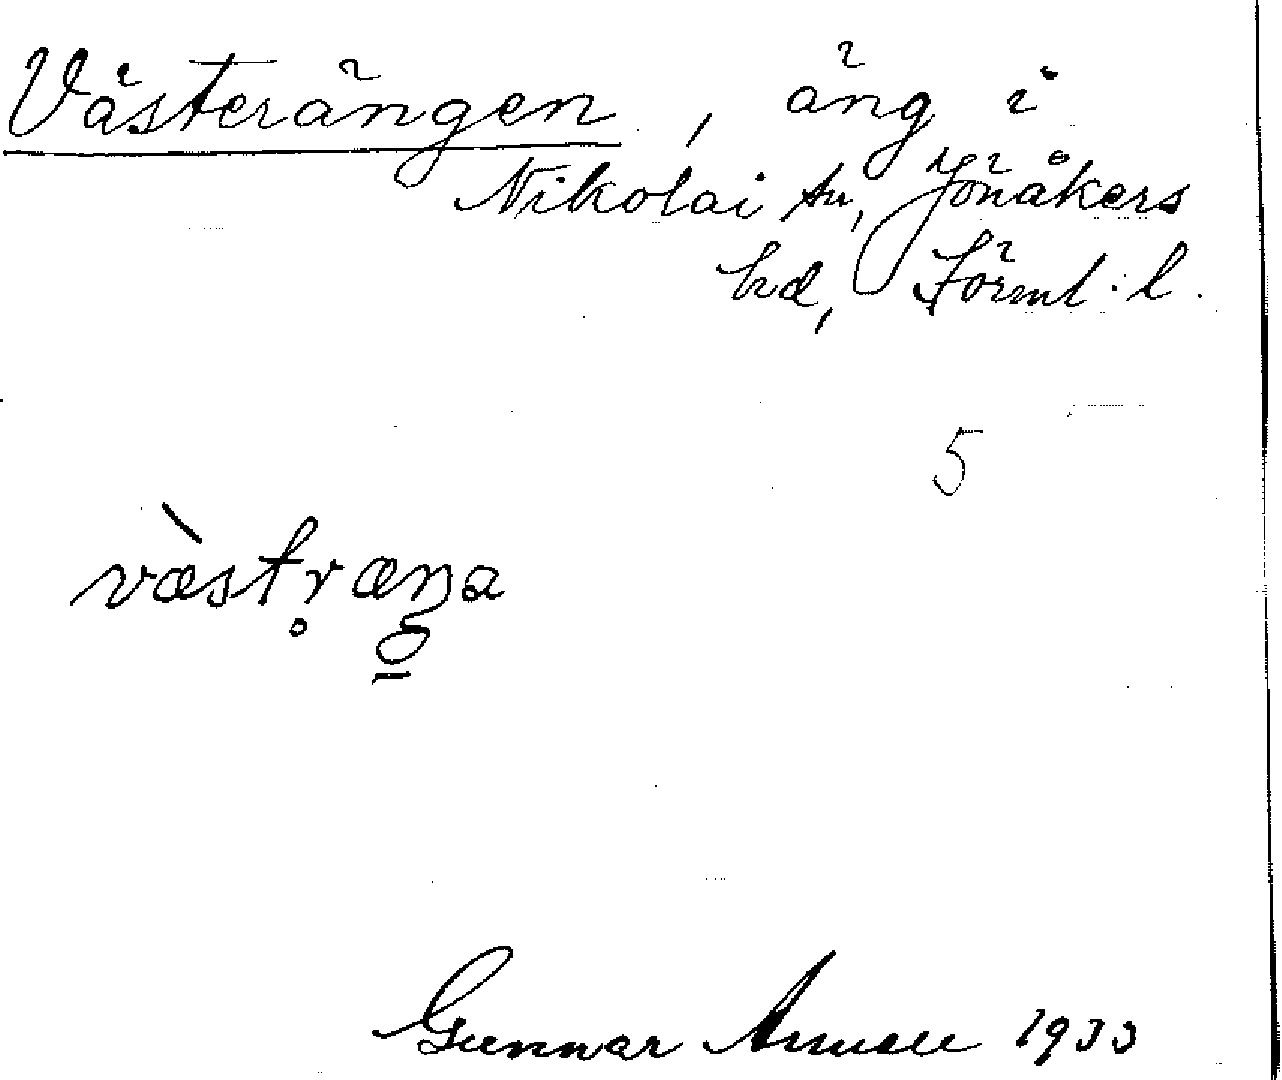 Västerängen, äng i
Nikolai sn, Jönåkers
hd, Sörml:l.
5
væ̀str̥æŋa
Gunnar 1933